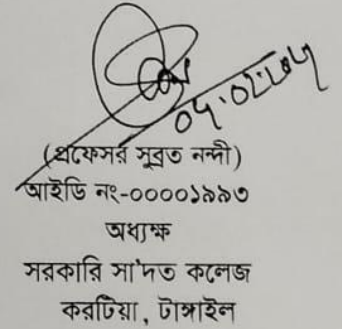 (প্রফেসর সুব্রত নন্দী)
আইডি নং-০০০০১৯৯৩
অধ্যক্ষ
সরকারি সা'দত কলেজ
করটিয়া, টাঙ্গাইল